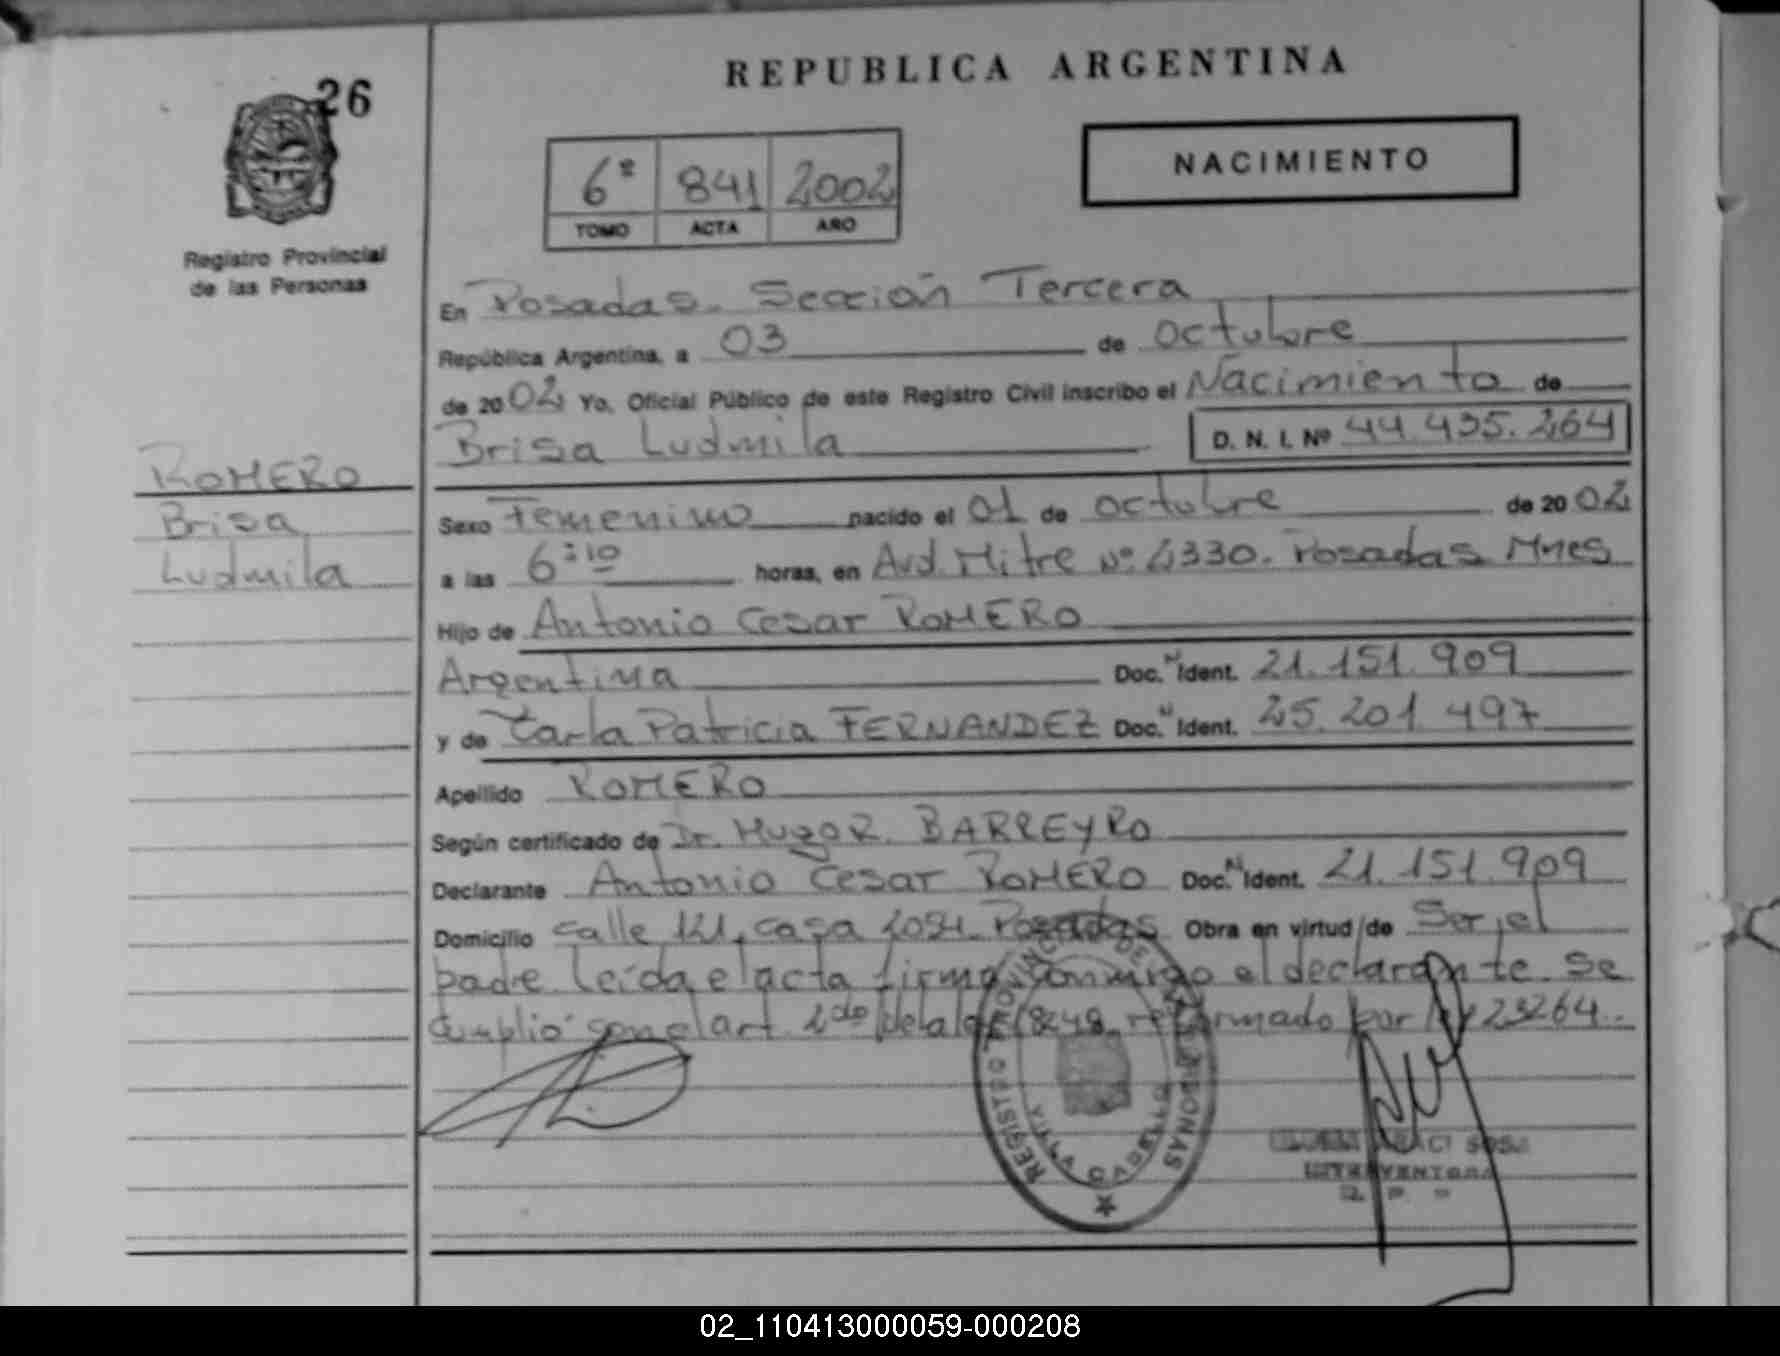 REPUBLICA ARGENTINA
26
NACIMIENTO
6º 841 2002
TOMO ACTA AÑO
Registro Provincial
de las Personas
En Posadas. Sección Tercera
República Argentina, a 03 de octubre
de 2002 Yo, Oficial Público de este Registro Civil inscribo el Nacimiento de
Brisa Ludmila D. N. I. Nº 44.435.264
ROMERO
Brisa
Ludmila
Sexo Femenino nacido el 01 de octubre de 2002
a las 6:10 horas, en Avd. Mitre Nº 2330. Posadas Mnes
Hijo de Antonio Cesar ROMERO
Argentina Doc. N Ident. 21.151.909
y de Carla Patricia FERNANDEZ Doc. N Ident. 25.201.497
Apellido ROMERO
Según certificado de Dr. Hugo R. BARREYRO
Declarante Antonio Cesar ROMERO Doc. N Ident. 21.151.909
Domicilio calle 121, casa Posadas Obra en virtud de Ser el
padre. Leída el acta firma conmigo el declarante. Se
cumplió con el art. 2do de la ley 18248 reformado por ley 23264.
REGISTRO PROVINCIAL DE LAS PERSONAS
VILLA CABELLO
SOSA
INTERVENTORA
R. P. P
02_110413000059-000208